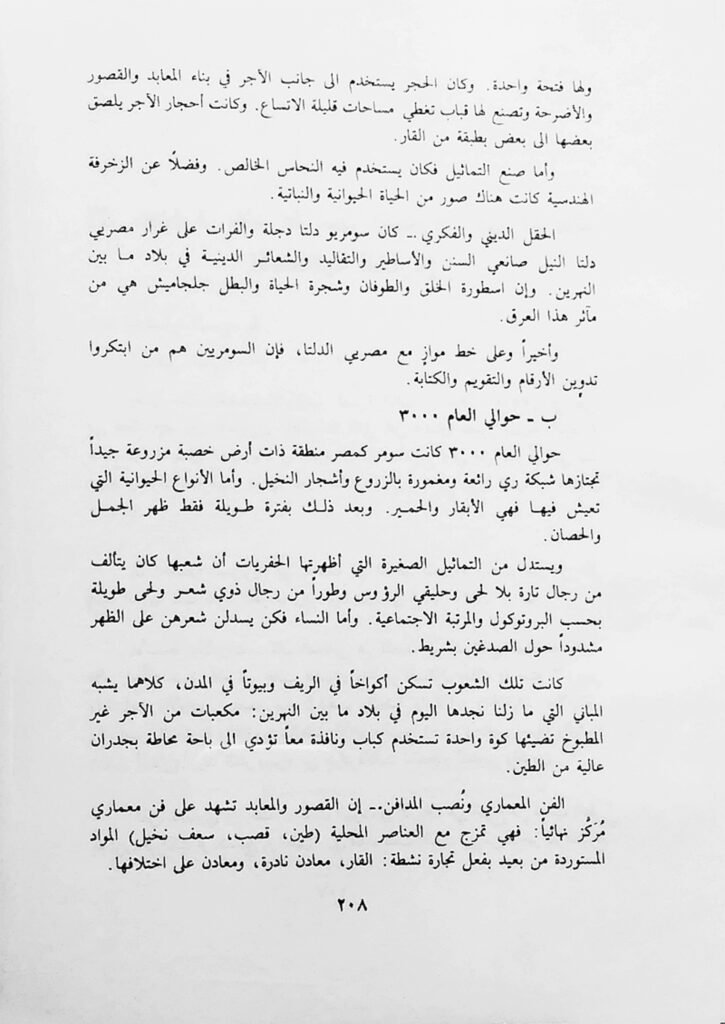 ولها فتحة واحدة. وكان الحجر يستخدم الى جانب الآجر في بناء المعابد والقصور
والأضرحة وتصنع لها قباب تغطي مساحات قليلة الاتساع. وكانت أحجار الآجر يلصق
بعضها الى بعض بطبقة من القار.
وأما صنع التماثيل فكان يستخدم فيه النحاس الخالص. وفضلًا عن الزخرفة
الهندسية كانت هناك صور من الحياة الحيوانية والنباتية.
الحقل الديني والفكري .ـ كان سومريو دلتا دجلة والفرات على غرار مصريي
دلتا النيل صانعي السنن والأساطير والتقاليد والشعائر الدينية في بلاد ما بين
النهرين. وإن اسطورة الخلق والطوفان وشجرة الحياة والبطل جلجاميش هي من
مآثر هذا العرق.
وأخيراً وعلى خط موازٍ مع مصريي الدلتا، فإن السومريين هم من ابتكروا
تدوين الأرقام والتقويم والكتابة.
ب ـ حوالي العام ٣٠٠٠
حوالي العام ٣٠٠٠ كانت سومر كمصر منطقة ذات أرض خصبة مزروعة جيداً
تجتازها شبكة ري رائعة ومغمورة بالزروع وأشجار النخيل. وأما الأنواع الحيوانية التي
تعيش فيها فهي الأبقار والحمير. وبعد ذلك بفترة طويلة فقط ظهر الجمل
والحصان.
ويستدل من التماثيل الصغيرة التي أظهرتها الحفريات أن شعبها كان يتألف
من رجال تارة بلا لحى وحليقي الرؤوس وطوراً من رجال ذوي شعر ولحى طويلة
بحسب البروتوكول والمرتبة الاجتماعية. وأما النساء فكن يسدلن شعرهن على الظهر
مشدوداً حول الصدغين بشريط.
كانت تلك الشعوب تسكن أكواخاً في الريف وبيوتاً في المدن، كلاهما يشبه
المباني التي ما زلنا نجدها اليوم في بلاد ما بين النهرين: مكعبات من الآجر غير
المطبوخ تضيئها كوة واحدة تستخدم كباب ونافذة معاً تؤدي الى باحة محاطة بجدران
عالية من الطين.
الفن المعماري ونُصب المدافن.ـ إن القصور والمعابد تشهد على فن معماري
مُرَكّز نهائياً: فهي تمزج مع العناصر المحلية (طين، قصب، سعف نخيل) المواد
المستوردة من بعيد بفعل تجارة نشطة: القار، معادن نادرة، ومعادن على اختلافها.
٢٠٨